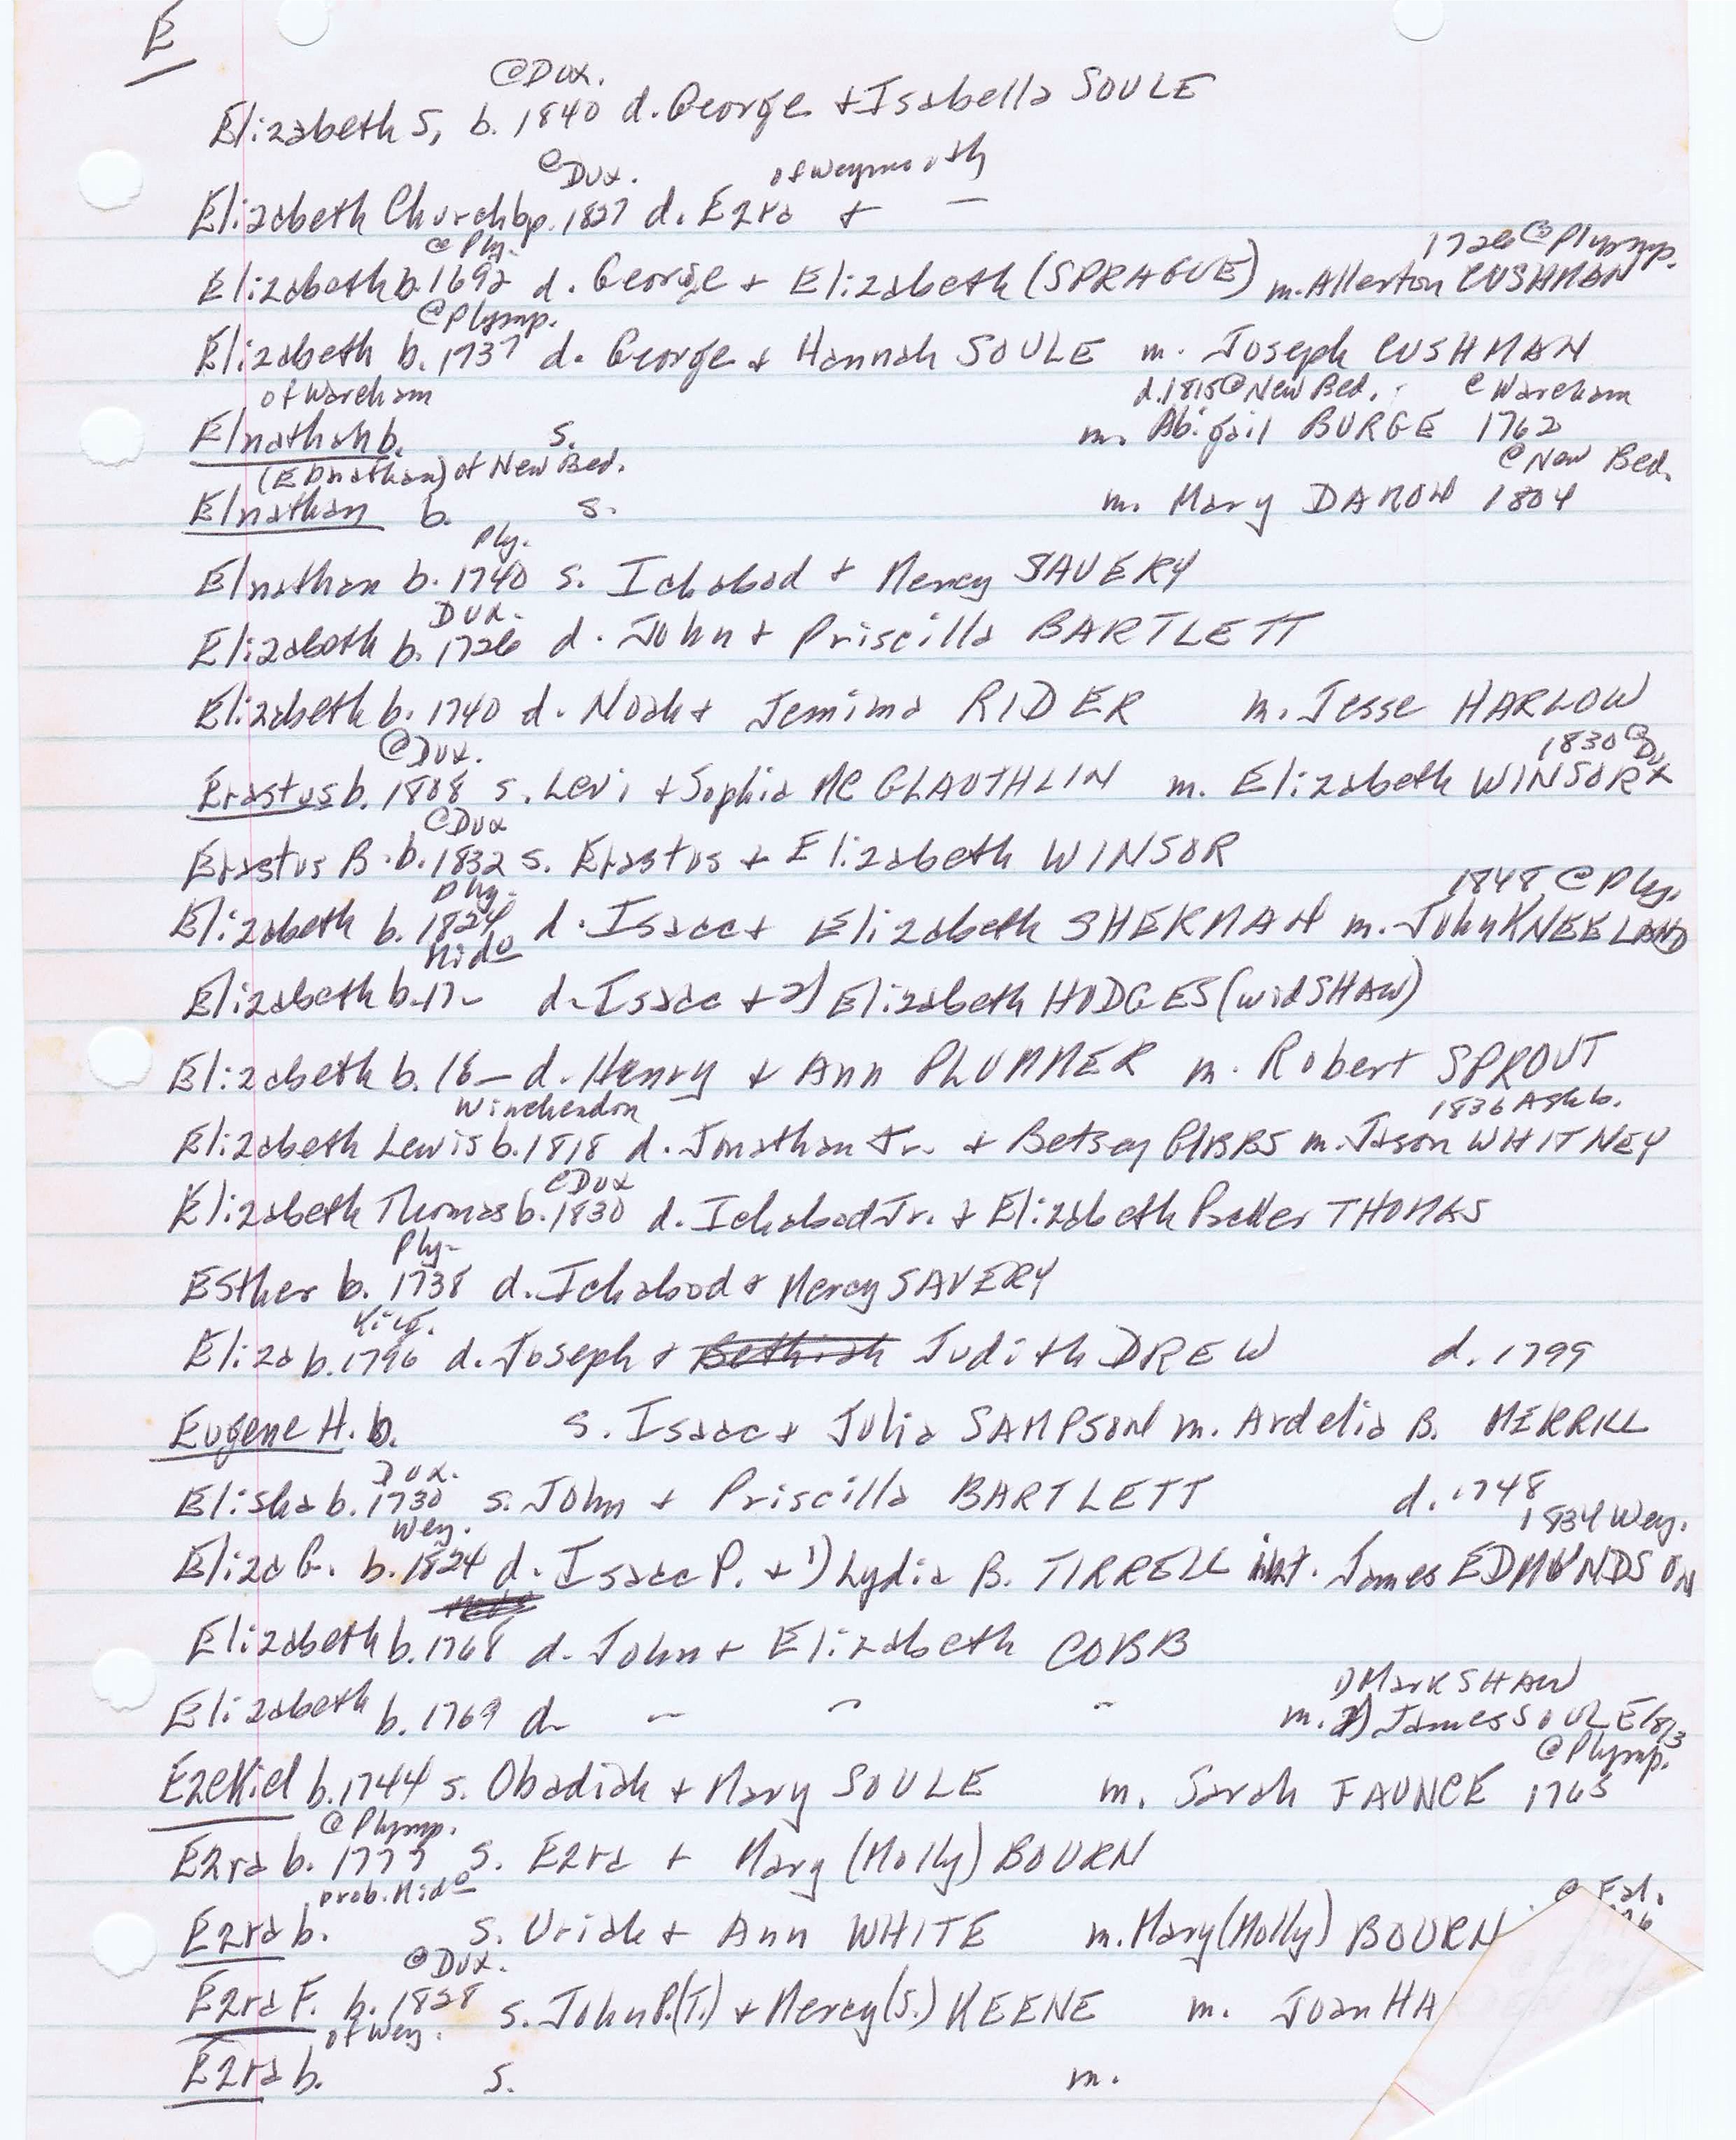 E
@Dux.
Elizabeth S, b. 1840 d. George + Isabella SOULE
@Dux. of Weymouth
Elizabeth Church bp. 1827 d. Ezra + —
@Ply. 1726 @ Plymp.
Elizabeth b. 1692 d. George + Elizabeth (SPRAGUE) m. Allerton CUSHMAN
@Plymp.
Elizabeth b. 1737 d. George + Hannah SOULE m. Joseph CUSHMAN
of Wareham d. 1815 @ New Bed. @ Wareham
Elnathan b. s. m. Abigail BURGE 1762
(Ebnathan) of New Bed. @ New Bed.
Elnathan b. s. m. Mary DAROW 1804
Ply.
Elnathan b. 1740 s. Ichabod + Mercy SAVERY
Dux.
Elizabeth b. 1726 d. John + Priscilla BARTLETT
Elizabeth b. 1740 d. Noah + Jemima RIDER m. Jesse HARLOW
@Dux. 1830 @ Dux
Erastus b. 1808 s. Levi + Sophia McGLAUTHLIN m. Elizabeth WINSOR
@Dux
Erastus B. b. 1832 s. Erastus + Elizabeth WINSOR
Ply. 1848 @ Ply.
Elizabeth b. 1824 d. Isaac + Elizabeth SHERMAN m. John KNEELAND
Mido
Elizabeth b. 17- d. Isaac + 2) Elizabeth HODGES (wid SHAW)
Elizabeth b. 16— d. Henry + Ann PLUMMER m. Robert SPROUT
Winchendon 1836 Ashb.
Elizabeth Lewis b. 1818 d. Jonathan Jr. + Betsey GIBBS m. Jason WHITNEY
@Dux
Elizabeth Thomas b. 1830 d. Ichabod Jr. + Elizabeth THOMAS
Ply-
Esther b. 1738 d. Ichabod + Mercy SAVERY
King.
Eliza b. 1796 d. Joseph + Bethiah Judith DREW d. 1799
Eugene H. b. s. Isaac + Julia SAMPSON m. Ardelia B. MERRILL
Dux.
Elisha b. 1730 s. John + Priscilla BARTLETT d. 1748
Wey. 1834 Wey.
Eliza G. b. 1824 d. Isaac P. + 1) Lydia B. TIRRELL int. James EDMUNDSON
Elizabeth b. 1768 d. John + Elizabeth COBB
1) Mark SHAW
Elizabeth b. 1769 d. — " " m. 2) James SOULE 1813
@ Plymp.
Ezekiel b. 1744 s. Obadiah + Mary SOULE m. Sarah FAUNCE 1765
@ Plymp.
Ezra b. 1777 s. Ezra + Mary (Molly) BOURN
prob. Mido @ Fal.
Ezra b. s. Uriah + Ann WHITE m. Mary (Molly) BOURN
@ Dux.
Ezra F. b. 1828 s. John P. (T.) + Mercy (S.) KEENE m. Joan HA
of Wey.
Ezra b. s. m.